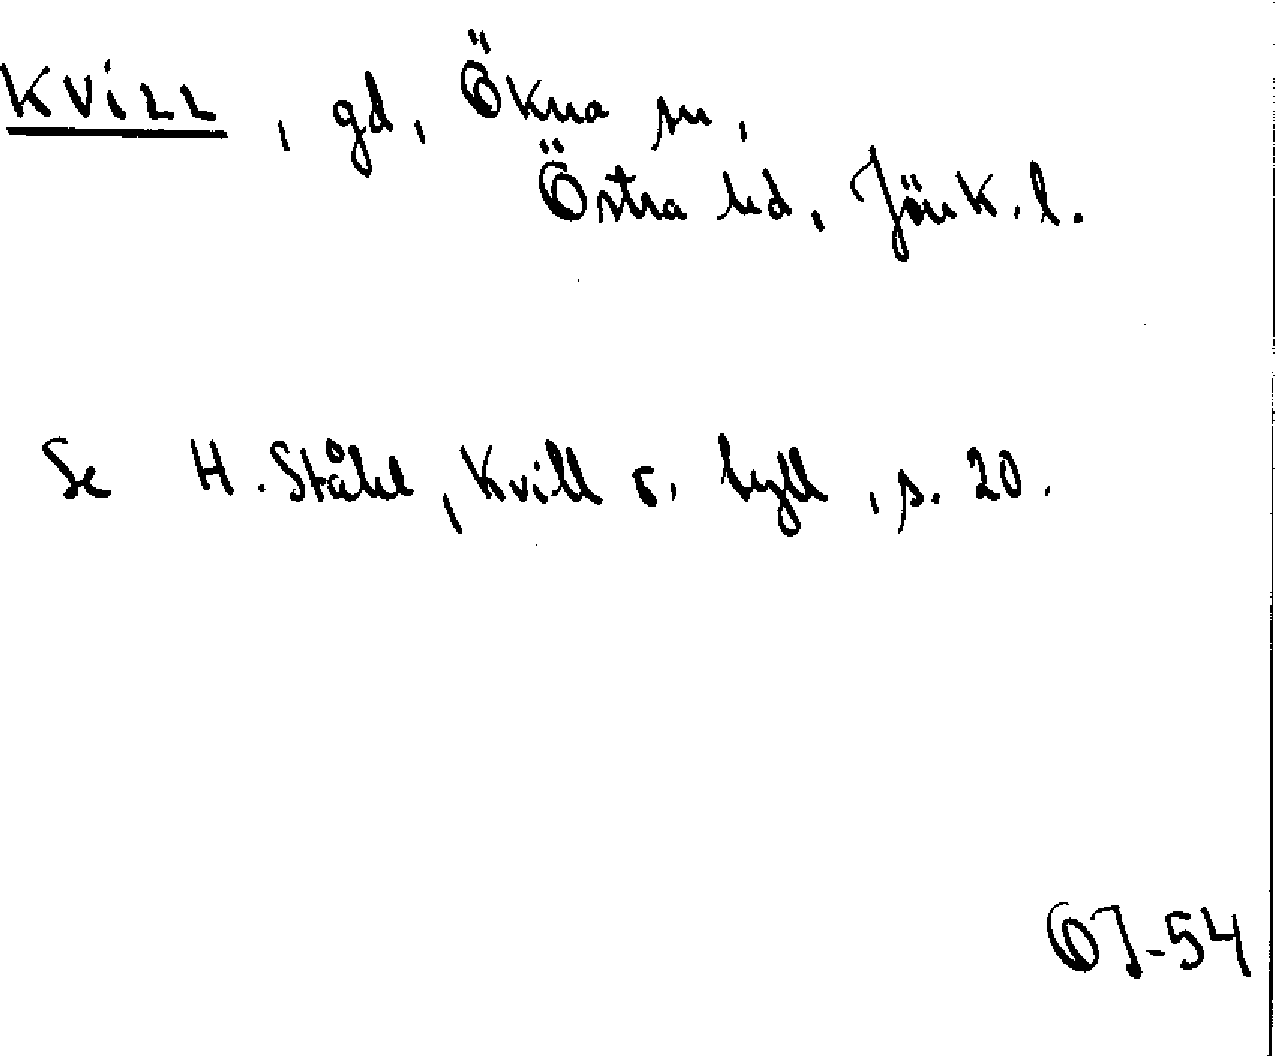 KVILL, gd, Ökna sn,
Östra hd, Jönk. l.
Se H. Ståhl, Kvill o. hyll, s. 20.
67-54